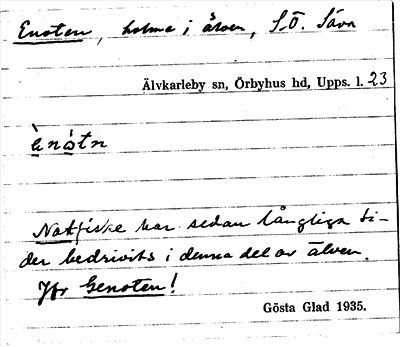 Enoten, holme i älven, S.Ö. Säva
Älvkarleby sn, Örbyhus hd, Upps. l. 23
ὲnòtn
Notfiske har sedan långliga ti-
der bedrivits i denna del av älven.
Jfr Genoten!
Gösta Glad 1935.